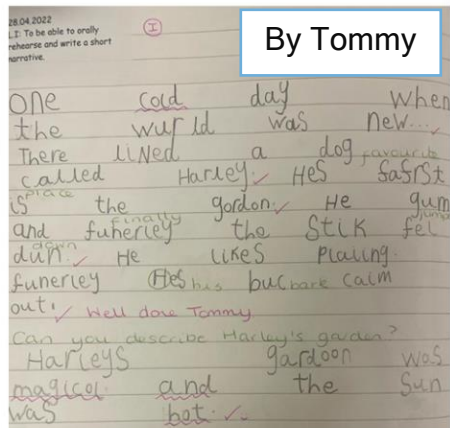 28.04.2022
L.I: To be able to orally
rehearse and write a short
narrative.
I
By Tommy
one cold day when
the wurld was new....
There lived a dog favourite
called Harley. Hes fasrst
place
is the gordon. He gum jump
finally
and funerley the Stik fel
down
dun. He likes plaiing.
funerley Hes his buc bark caim
out.
Well done Tommy.
Can you describe Harley's garden?
Harleys gardoon was
magicol. and the sun
was hot.